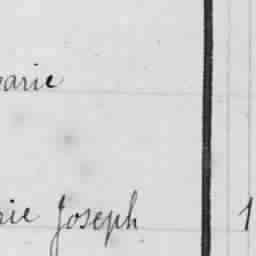 arie
rie Joseph 1